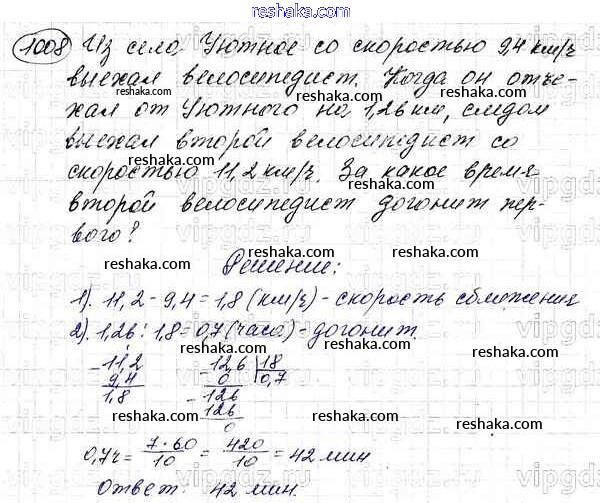 reshaka.com
1008 Из села Уютное со скоростью 9,4 км/ч
выехал велосипедист. Когда он отъе-
reshaka.com reshaka.com
хал от Уютного на 1,26 км, следом
выехал второй велосипедист со
reshaka.com reshaka.com
скоростью 11,2 км/ч. За какое время
второй велосипедист догонит пер-
reshaka.com reshaka.com
вого?
reshaka.com reshaka.com
Решение:
1). 11,2 - 9,4 = 1,8 (км/ч) - скорость сближения
reshaka.com reshaka.com
2). 1,26 : 1,8 = 0,7 (часа) - догонит.
reshaka.com reshaka.com
- 11,2 - 12,6 | 18
9,4 0 0,7
1,8 - 126
reshaka.com reshaka.com
126
0
0,7 ч = 7·60/10 = 420/10 = 42 мин
reshaka.com reshaka.com
Ответ: 42 мин.
reshaka.com reshaka.com
vipgdz.ru